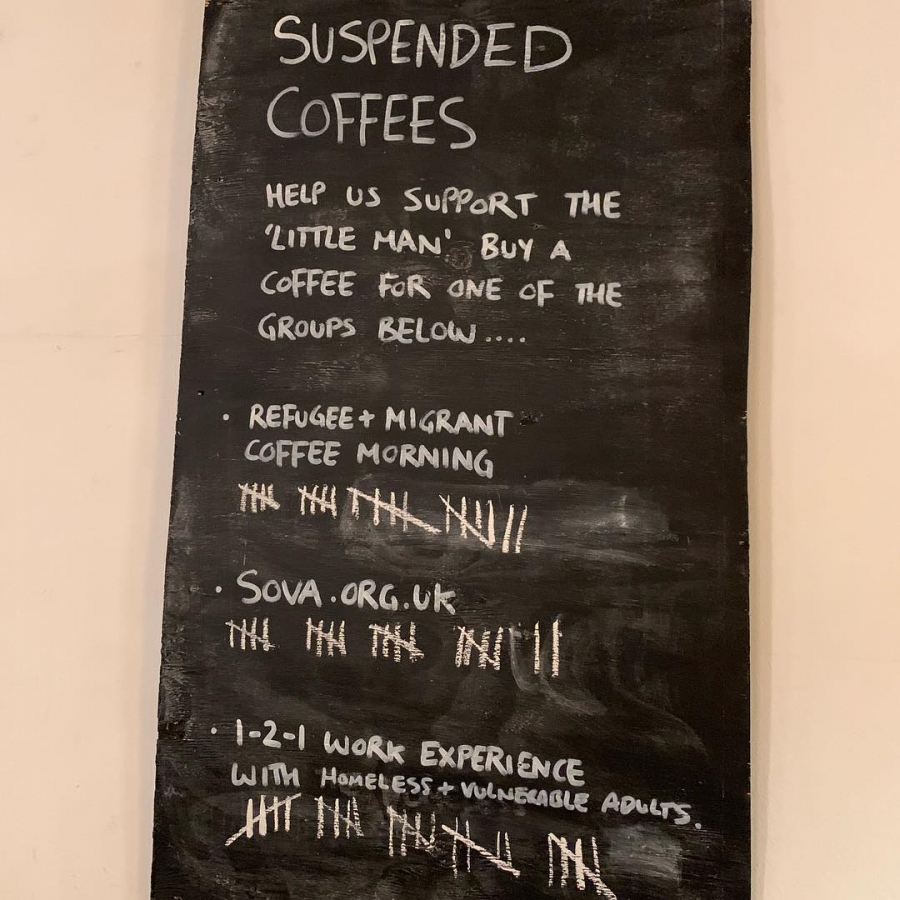 SUSPENDED
COFFEES
HELP US SUPPORT THE
'LITTLE MAN' BUY A
COFFEE FOR ONE OF THE
GROUPS BELOW....
· REFUGEE + MIGRANT
COFFEE MORNING
· SOVA.ORG.UK
· 1-2-1 WORK EXPERIENCE
WITH HOMELESS + VULNERABLE ADULTS.